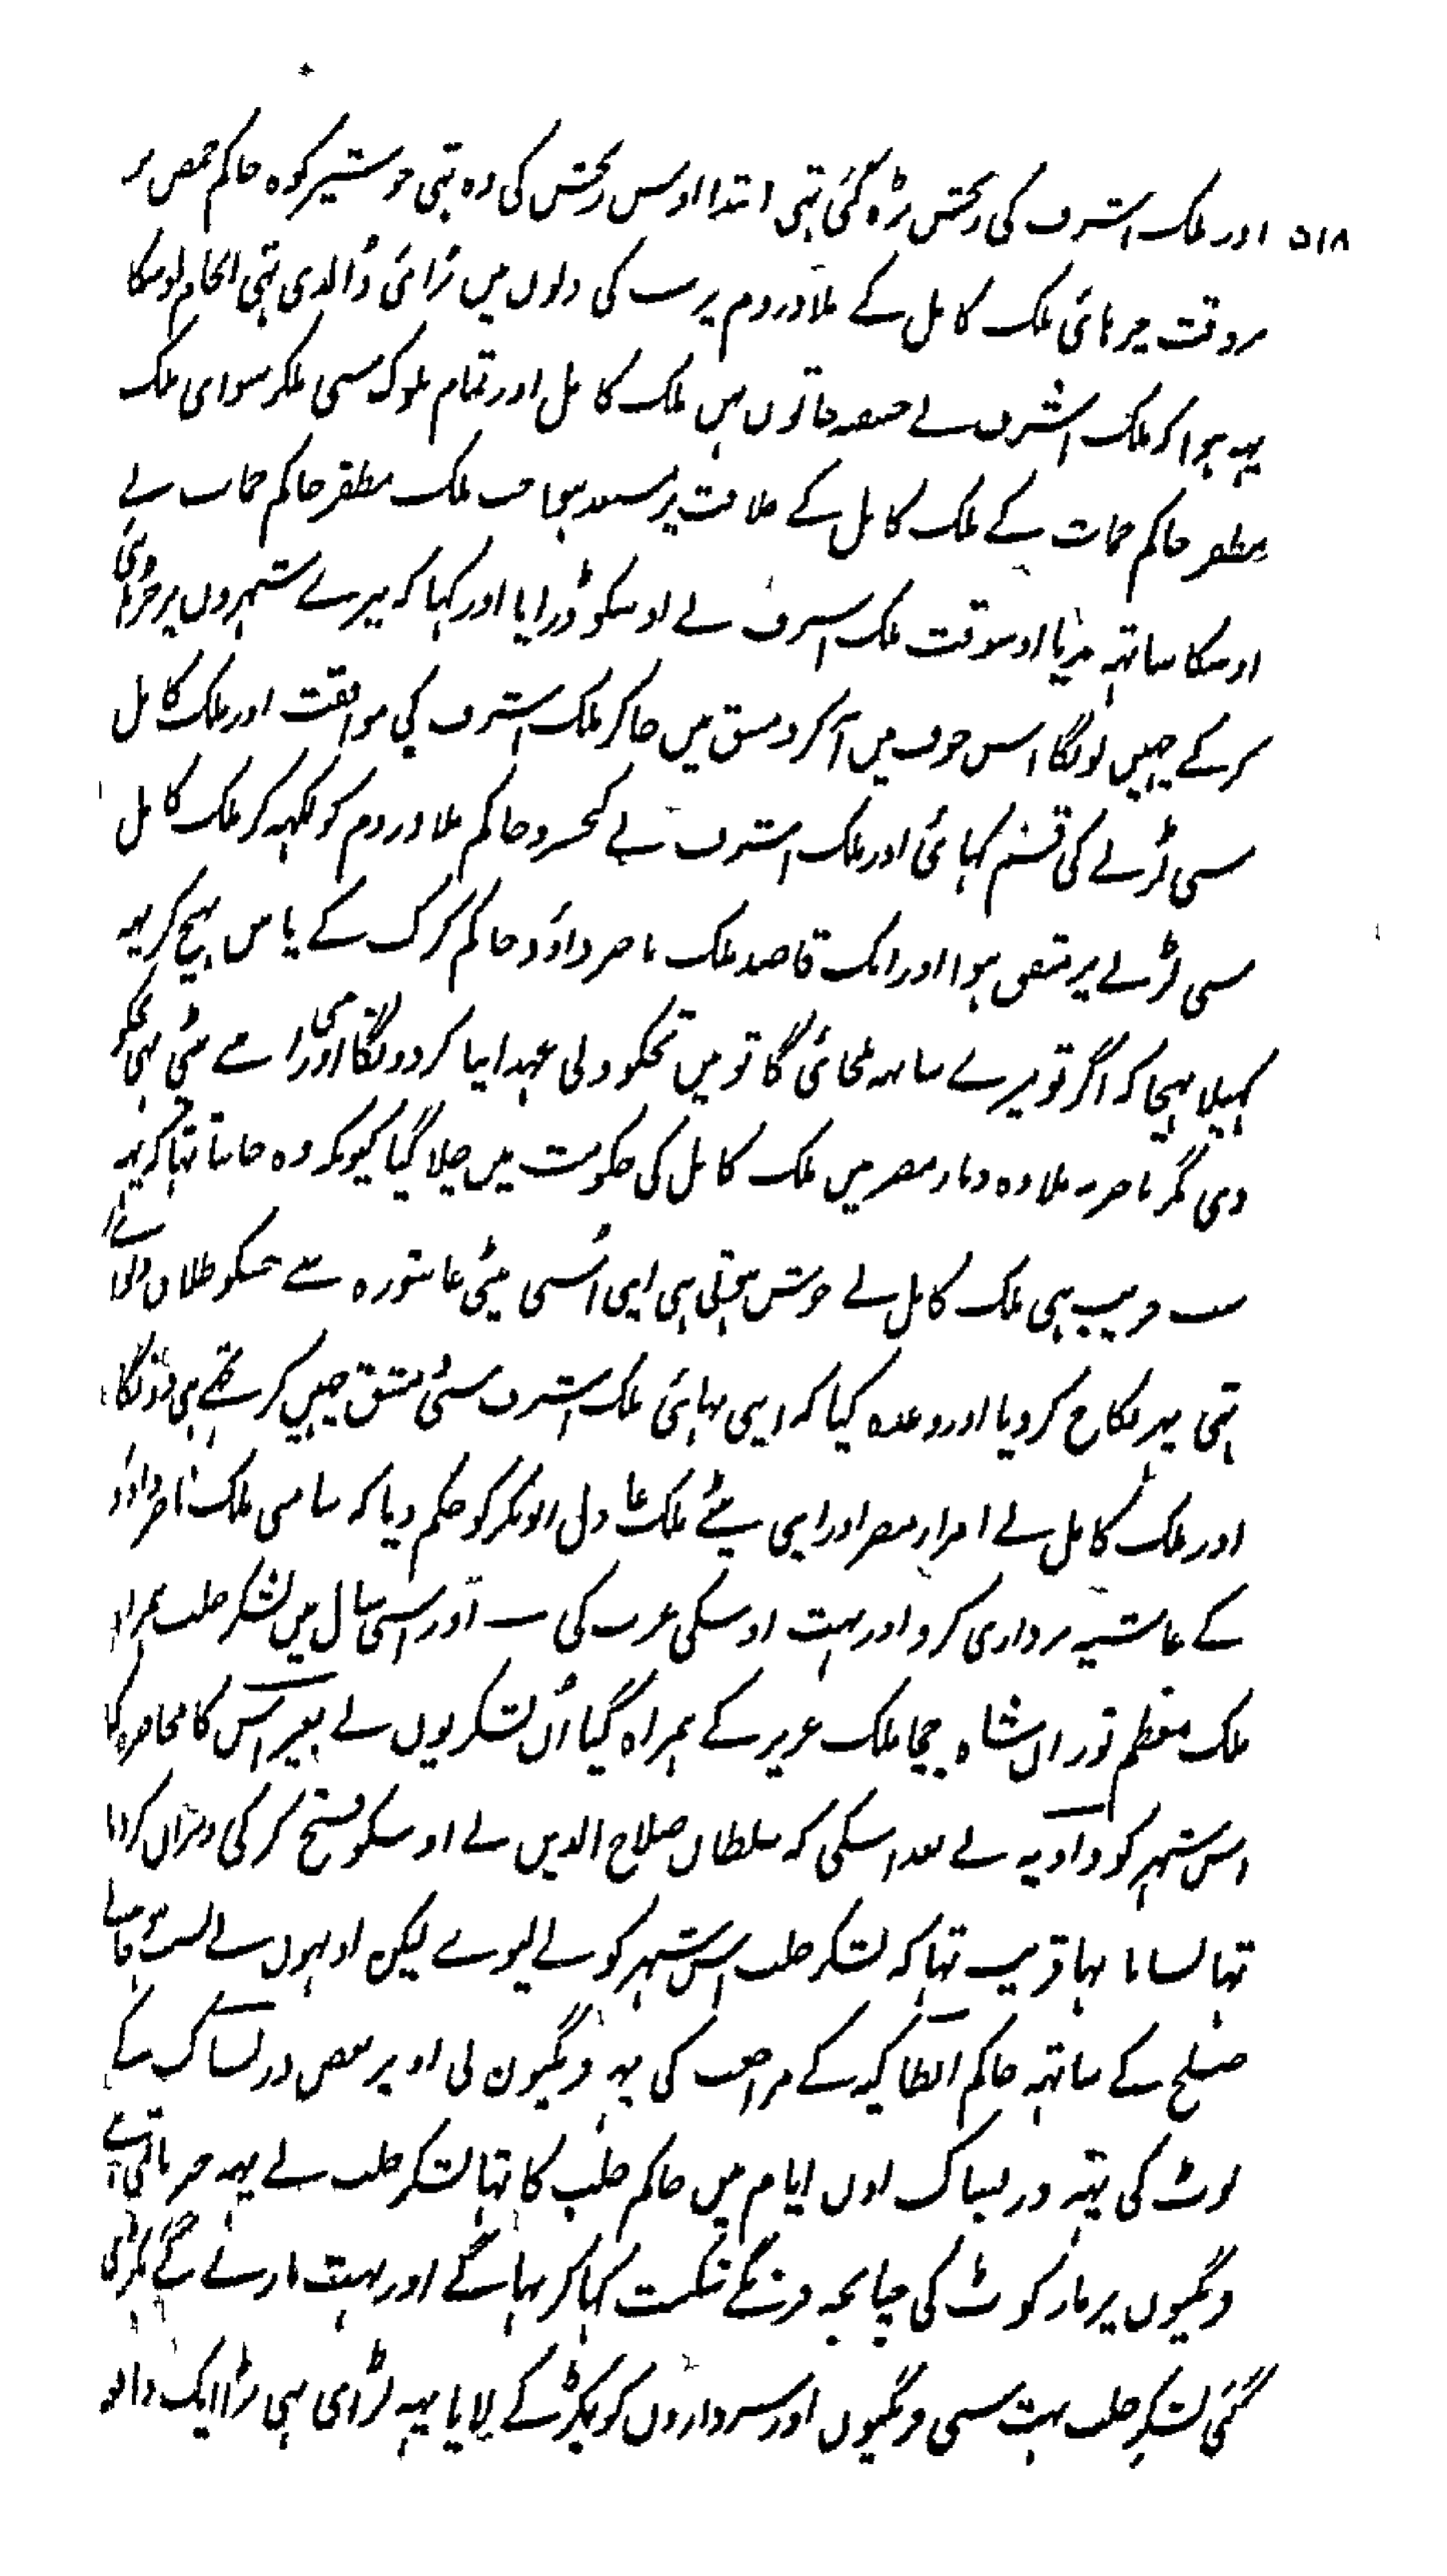 ۵۱۸ اور ملک اشرف کی رنجش بڑہ گئی تہی ابتدا اوس رنجش کی وہ تہی جو شیر کوہ حاکم حمص نے
بروقت چڑہائی ملک کامل کے بلاد روم پر سب کی دلوں میں بڑائی ڈالدی تہی انجام اوسکا
یہہ ہوا کہ ملک اشرف نے ضیفہ خاتون ملک کامل اور تمام ملوک سی ملکر سوای ملک
مظفر حاکم حمات کے ملک کامل کے خلافت پر مستعد ہوا جب ملک مظفر حاکم حمات نے
اوسکا ساتہہ ندیا اوسوقت ملک اشرف نے اوسکو ڈرایا اور کہا کہ تیرے شہروں پر چڑہائی
کرکے چہین لونگا اس خوف میں آکر دمشق میں جاکر ملک اشرف کی موافقت اور ملک کامل
سی لڑنے کی قسم کہائی اور ملک اشرف نے کیخسرو حاکم بلاد روم کو لکہہ کر ملک کامل
سی لڑنے پر متفق ہوا اور ایک قاصد ملک ناصر داؤد حاکم کرک کے پاس بہیج کر یہہ
کہیلا بہیجا کہ اگر تو میرے ساتہہ ملجائی گا تو میں تجکو ولی عہد اپنا کردونگا اور اپنے بیٹی بہی تجکو
دی مگر ناصر دیار مصر میں ملک کامل کی حکومت میں چلا گیا کیونکہ وہ جانتا تہا کہ یہہ
سب فریب ہی ملک کامل نے خوش ہو اپنی اُسی بیٹی عاشورہ سے جسکو طلاق دلوائے
تہی پہر نکاح کردیا اور وعدہ کیا کہ اپنی بہائی ملک اشرف سی دمشق چہین کر تجہے ہی دونگا
اور ملک کامل نے امراء مصر اور اپنی بیٹے ملک عادل ابوبکر کو حکم دیا کہ سامنی ملک ناصر داؤد
کے غاشیہ برداری کرو اور بہت اوسکی عزت کی ــ اور اسی سال میں لشکر حلب ہمراہ
ملک معظم توران شاہ چچا ملک عزیز کے ہمراہ گیا اُن لشکریوں نے بغراس کا محاصرہ کیا
اس شہر کو داویہ نے بعد اسکی کہ سلطان صلاح الدین نے اوسکو فتح کر کی ویران کردیا
تہا بسایا تہا قریب تہا کہ لشکر حلب اس شہر کو لے لیوے لیکن اونہوں نے بسبب
صلح کے ساتہہ حاکم انطاکیہ کے مراجعت کی پہر فرنگیون نی اوپر بعض دربساک کے
لوٹ کی تہہ دربساک اون ایام میں حاکم حلب کا تہا لشکر حلب نے یہہ خبر پاتے
فرنگیوں پر مار کوٹ کی چنانچہ فرنگے شکست کہا کر بہاگے اور بہت مارے گئے
گئی لشکر حلب بہت سی فرنگیوں اور سرداروں کو پکڑ کے لایا یہہ لڑای بہی بڑا ایک